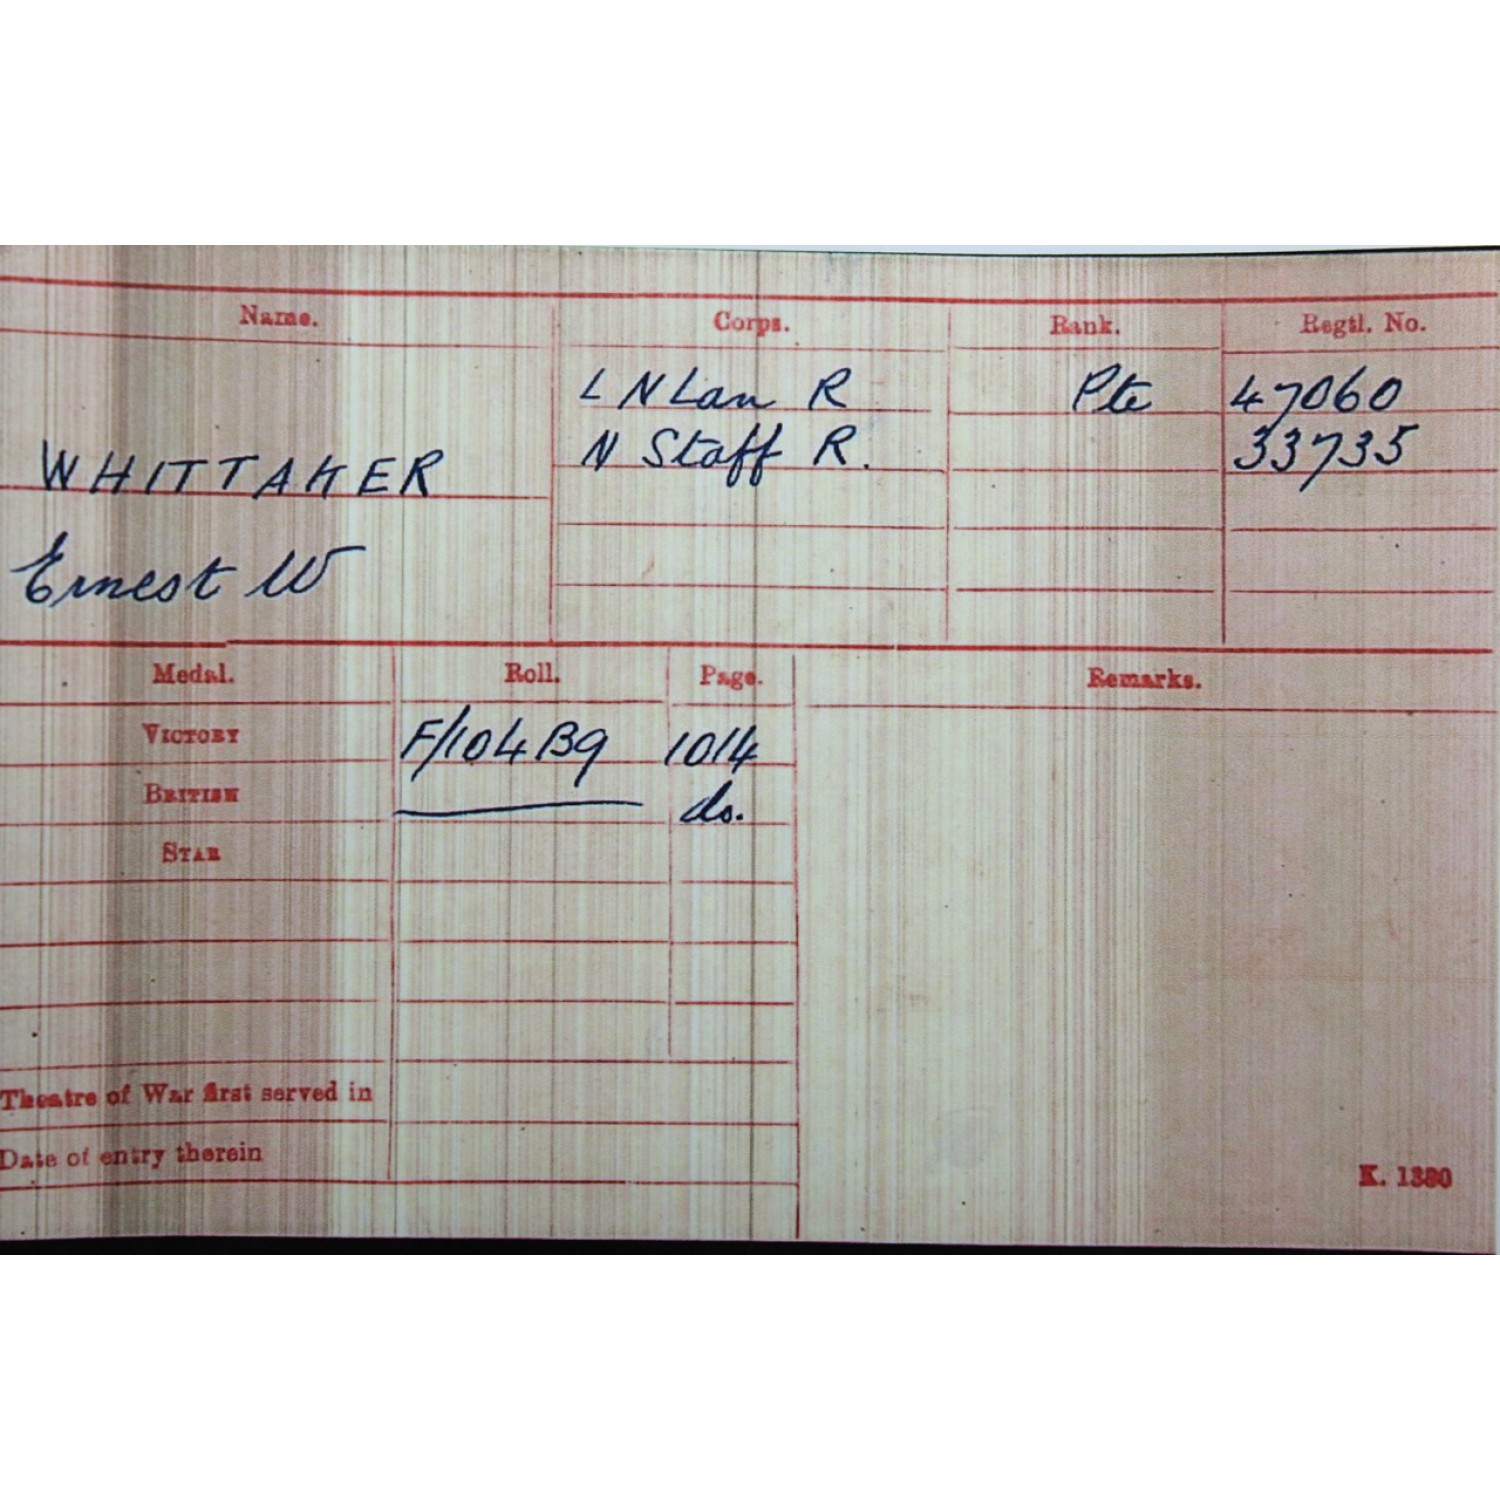 Name. Corps. Rank. Regtl. No.
L N Lan R Pte 47060
N Staff R. 33735
WHITTAKER
Ernest W
Medal. Roll. Page. Remarks.
VICTORY F/104B9 1014
BRITISH do.
STAR
Theatre of War first served in
Date of entry therein
K. 1380